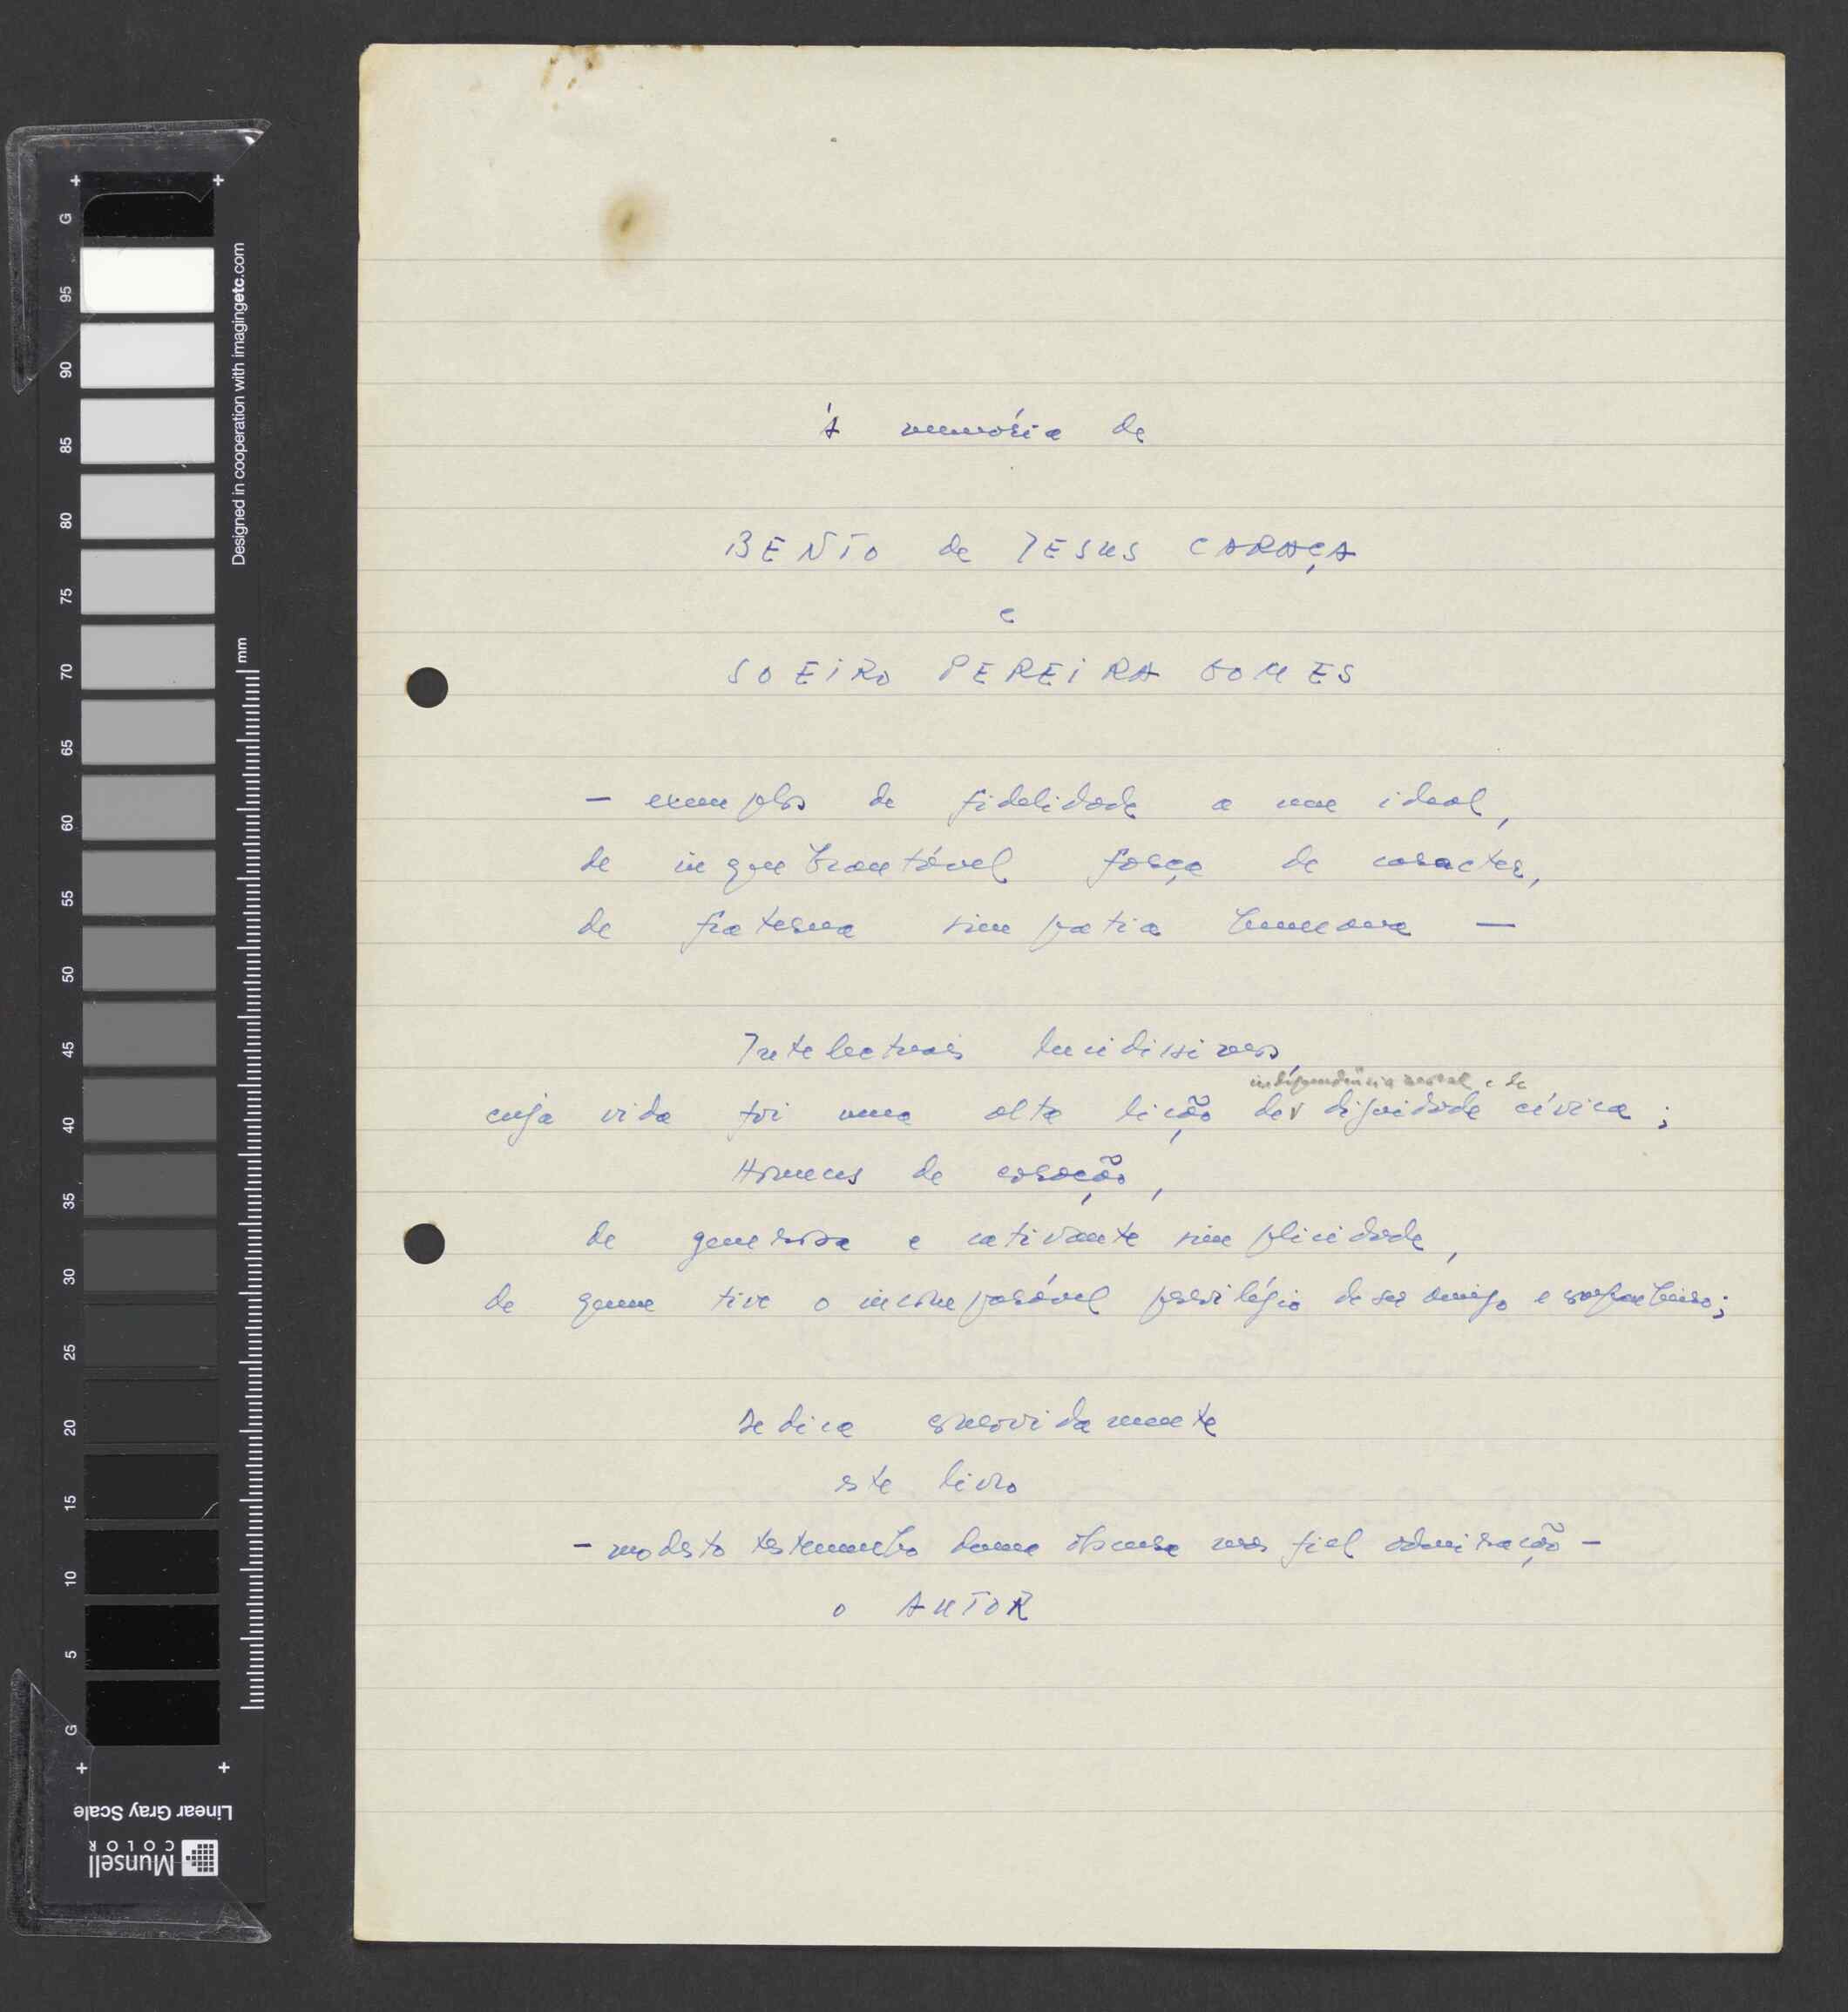 G
95
90
85
80
75
70
65
60
55
50
45
40
35
30
25
20
15
10
5
G
Designed in cooperation with imagingetc.com
mm
Linear Gray Scale
Munsell
COLOR
À memória de
BENTO de JESUS CARAÇA
e
SOEIRO PEREIRA GOMES
— exemplos de fidelidade a um ideal,
de inquebrantável força de caracter,
de fraterna simpatia humana —
Intelectuais lucidissimos,
independência moral e de
cuja vida foi uma alta lição de dignidade cívica;
Homens de coração,
de generosa e cativante simplicidade,
de quem tive o incomparável privilégio de ser amigo e companheiro;
dedica comovidamente
este livro
— modesto testemunho duma obscura mas fiel admiração —
o AUTOR